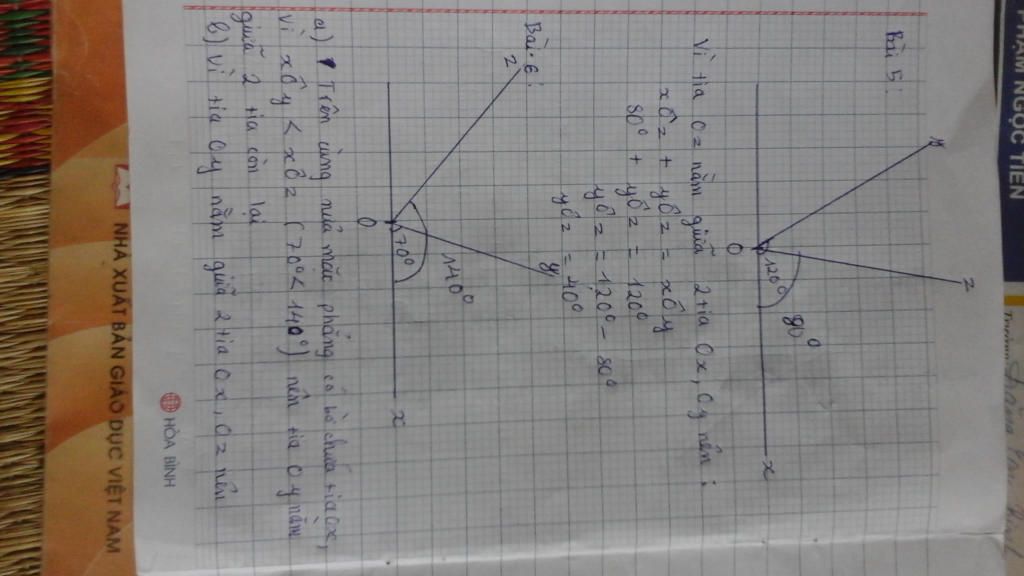 PHẠM NGỌC TIẾN
Bài 5:
y
z
O
120°
80°
x
Vì tia Oz nằm giữa 2 tia Ox, Oy nên:
xÔz + yÔz = xÔy
80° + yÔz = 120°
yÔz = 120° - 80°
yÔz = 40°
Bài 6:
z
y
140°
70°
O
x
a) Trên cùng nửa mặt phẳng có bờ chứa tia Ox,
Vì xÔy < xÔz (70° < 140°) nên tia Oy nằm
giữa 2 tia còn lại
b) Vì tia Oy nằm giữa 2 tia Ox, Oz nên
HÒA BÌNH
NHÀ XUẤT BẢN GIÁO DỤC VIỆT NAM